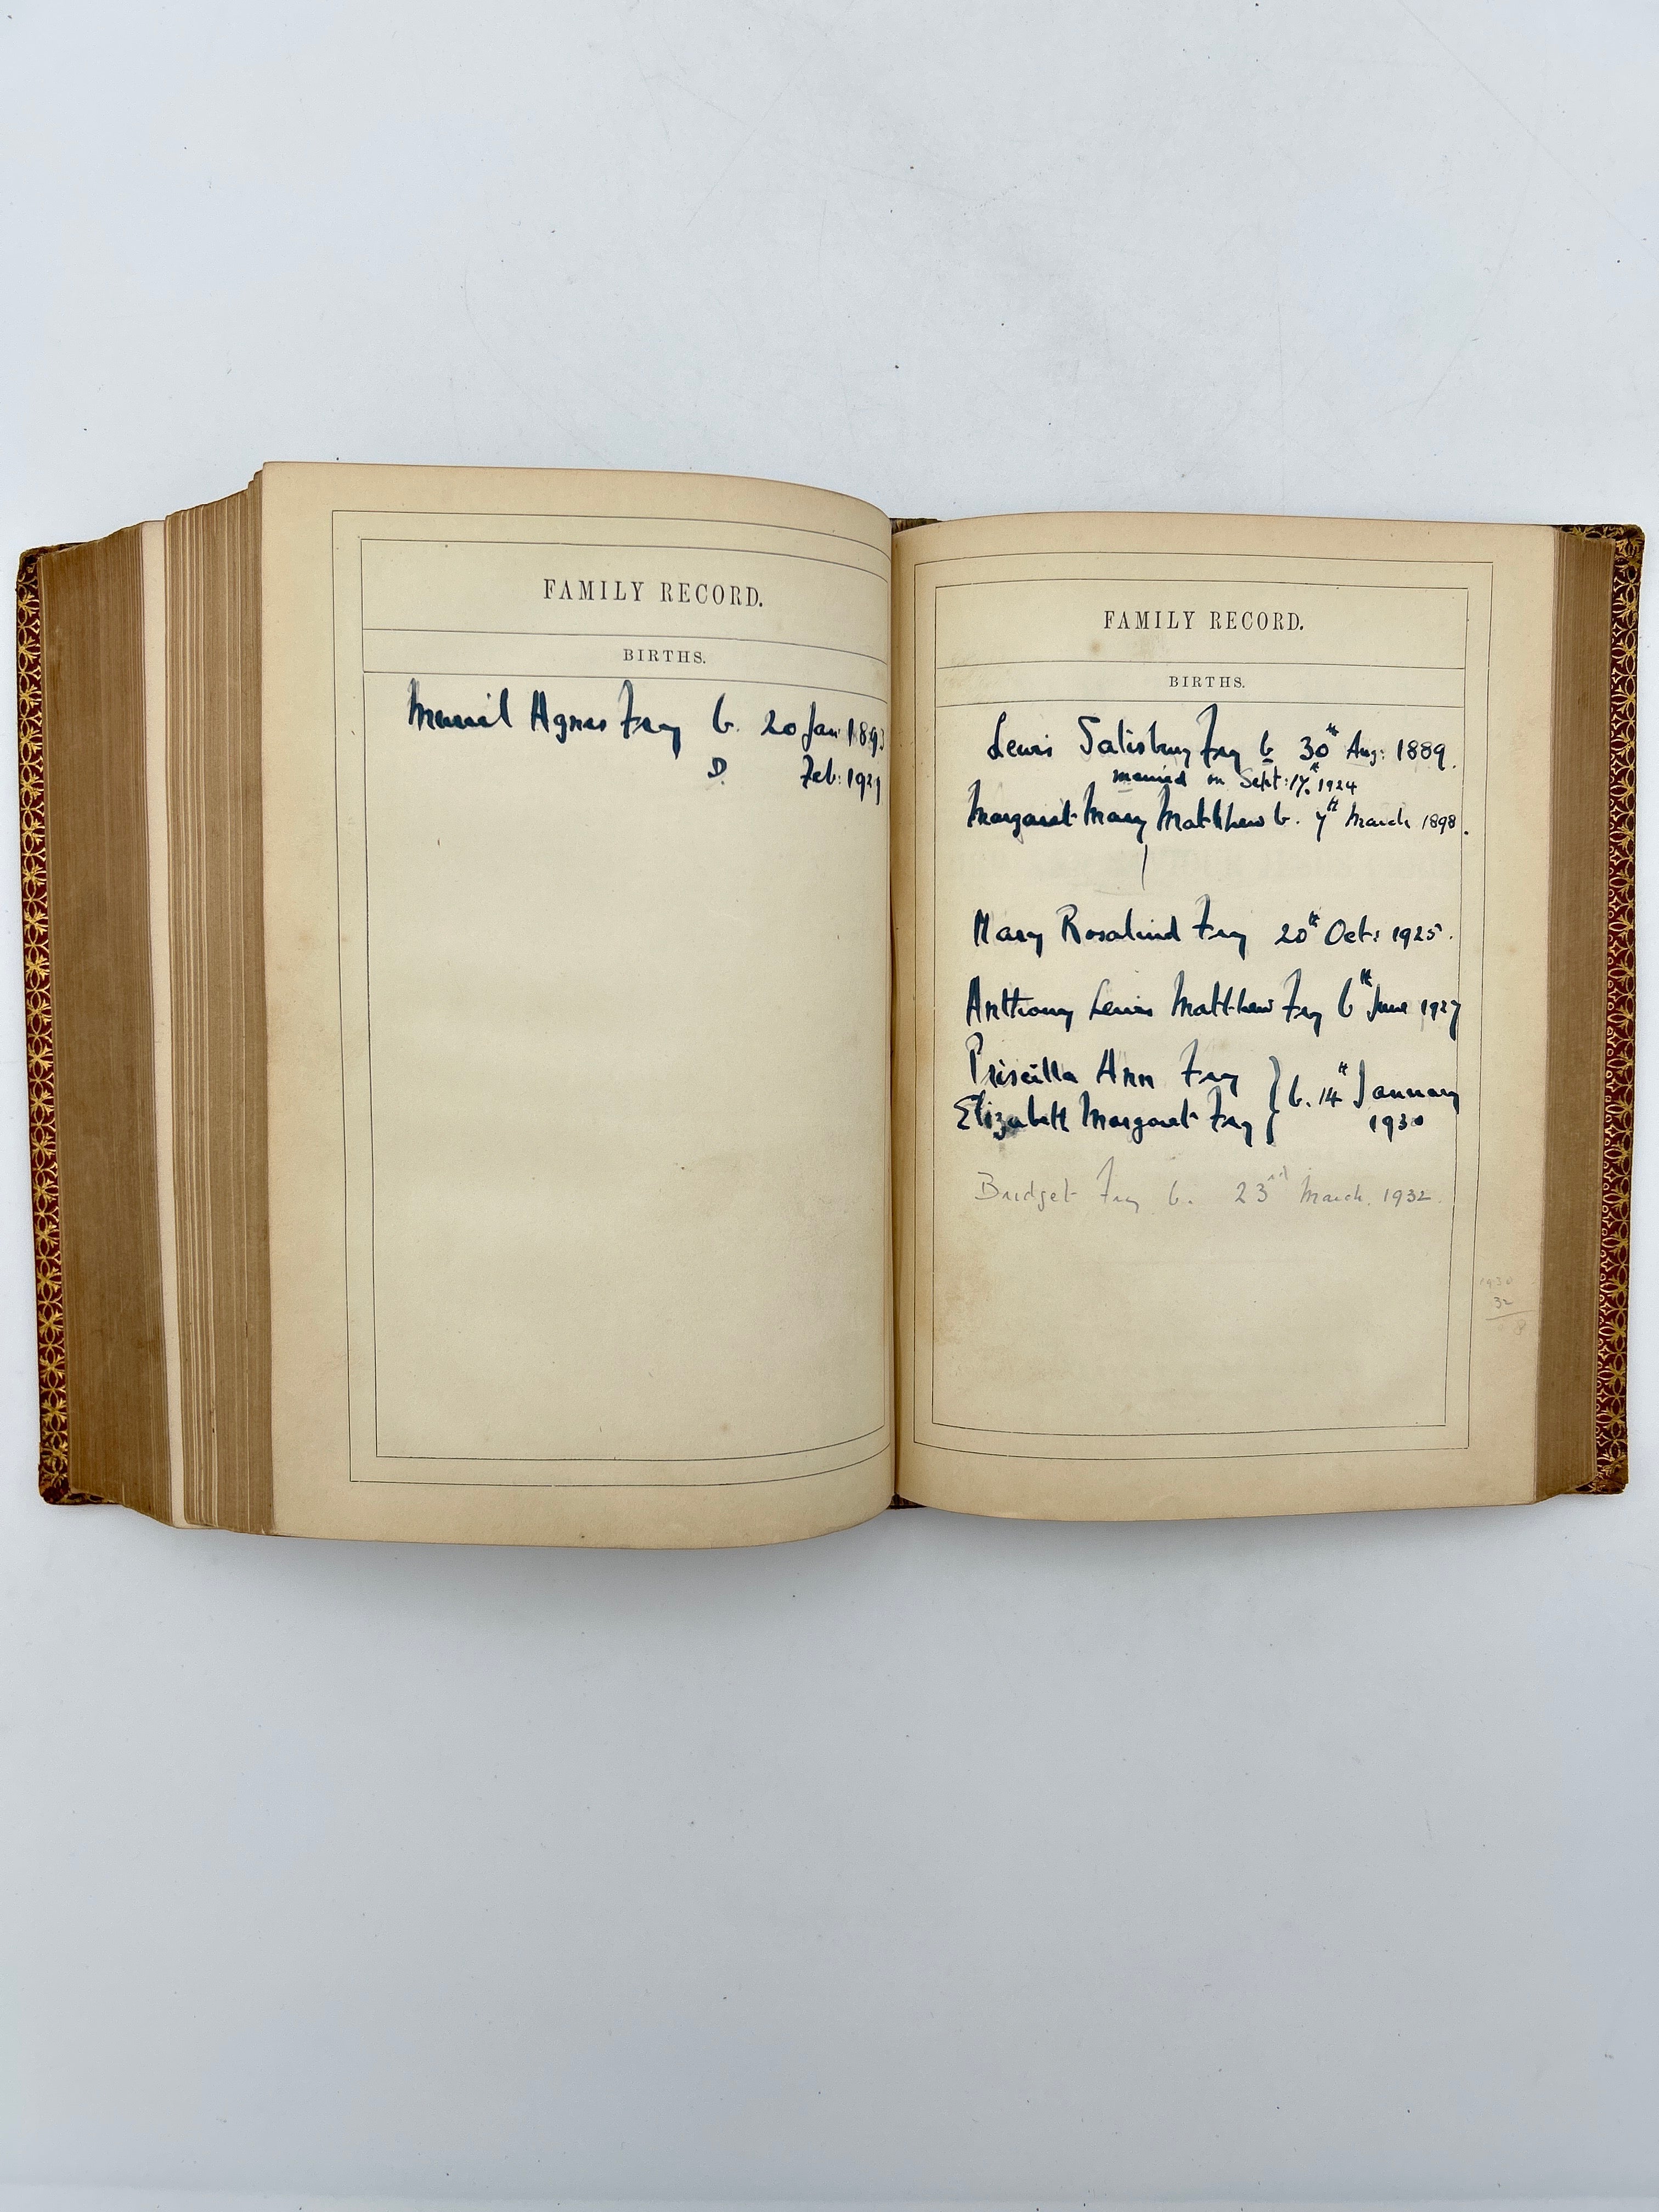 FAMILY RECORD.
BIRTHS.
Muriel Agnes Fry b. 20 Jan 1893
D. Feb: 1921
FAMILY RECORD.
BIRTHS.
Lewis Salisbury Fry b 30th Aug: 1889.
married on Sept: 17th 1924
Margaret Mary Matthew b. 7th March 1898.
Mary Rosalind Fry 20th Oct: 1925.
Anthony Lewis Matthew Fry 6th June 1927
Priscilla Ann Fry
Elizabeth Margaret Fry } b. 14th January
1930
Bridget Fry b. 23rd March. 1932.
1930
32